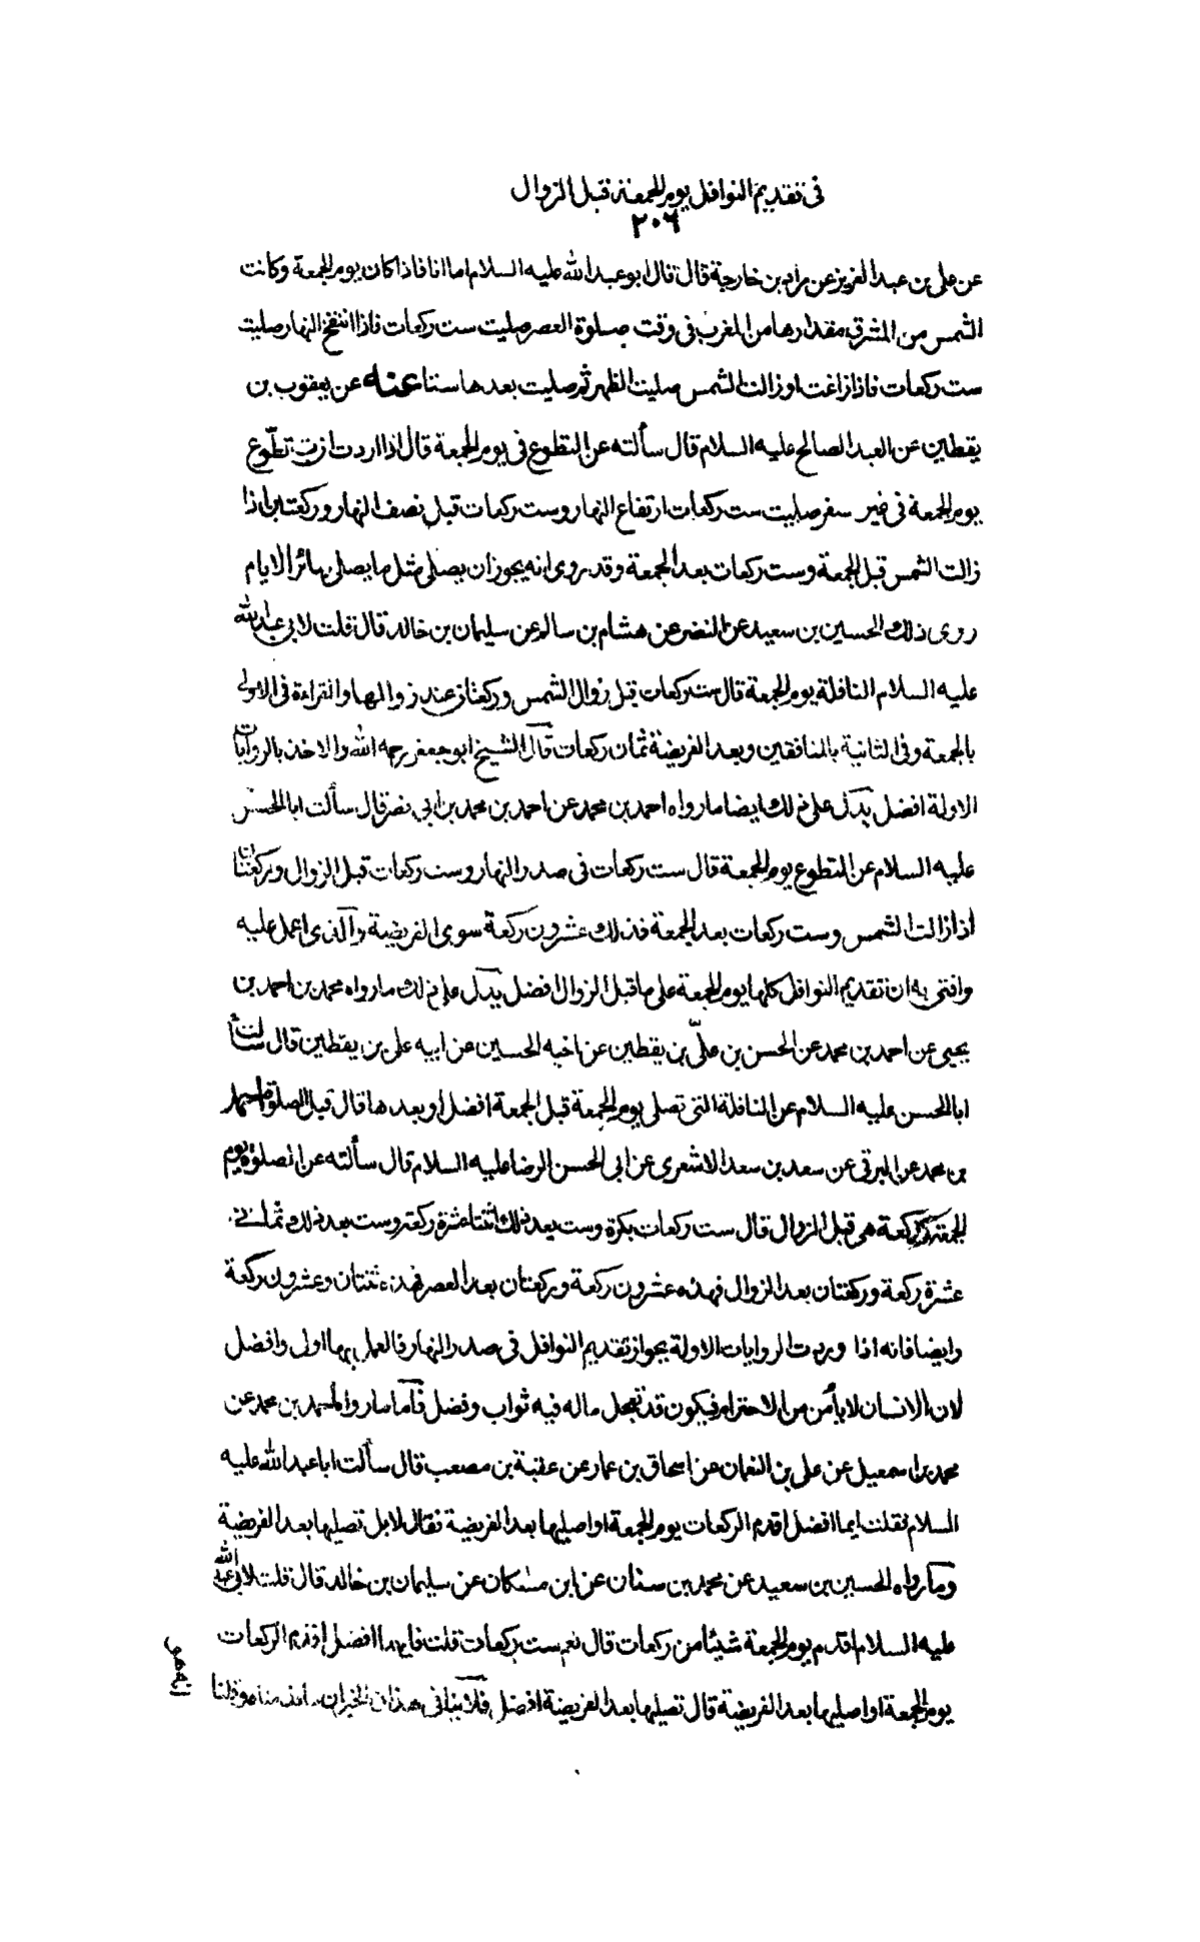 فى تقديم النوافل يوم الجمعة قبل الزوال
٢٠٦
عن على بن عبد العزيز عن مراد بن خارجة قال قال ابو عبد الله عليه السلام اما انا فاذا كان يوم الجمعة وكانت
الشمس من المشرق مقدارها من المغرب فى وقت صلوة العصر صليت ست ركعات فاذا انتفخ النهار صليت
ست ركعات فاذا زاغت او زالت الشمس صليت الظهر ثم صليت بعدها ستا عنه عن يعقوب بن
يقطين عن العبد الصالح عليه السلام قال سألته عن التطوع فى يوم الجمعة قال اذا اردت ان تطوّع
يوم الجمعة فى غير سفر صليت ست ركعات ارتفاع النهار وست ركعات قبل نصف النهار وركعتين اذا
زالت الشمس قبل الجمعة وست ركعات بعد الجمعة وقد روى انه يجوز ان يصلى مثل ما يصلى سائر الايام
روى ذلك الحسين بن سعيد عن النضر عن هشام بن سالم عن سليمان بن خالد قال قلت لابى عبد الله
عليه السلام النافلة يوم الجمعة قال ست ركعات قبل زوال الشمس وركعتان عند زوالها والقراءة فى الاولى
بالجمعة وفى الثانية بالمنافقين وبعد الفريضة ثمان ركعات قال الشيخ ابو جعفر رحمه الله والاخذ بالروايات
الاولة افضل يدل على ذلك ايضا ما رواه احمد بن محمد عن احمد بن محمد بن ابى نصر قال سألت ابا الحسن
عليه السلام عن التطوع يوم الجمعة قال ست ركعات فى صدر النهار وست ركعات قبل الزوال وركعتان
اذا زالت الشمس وست ركعات بعد الجمعة فذلك عشرون ركعة سوى الفريضة والذى اعمل عليه
وافتى به ان تقديم النوافل كلها يوم الجمعة على ما قبل الزوال افضل يدل على ذلك ما رواه محمد بن احمد بن
يحيى عن احمد بن محمد عن الحسن بن علىّ بن يقطين عن اخيه الحسين عن ابيه على بن يقطين قال سألت
ابا الحسن عليه السلام عن النافلة التى تصلى يوم الجمعة قبل الجمعة افضل او بعدها قال قبل الصلوة احمد
بن محمد عن البرقى عن سعد بن سعد الاشعرى عن ابى الحسن الرضا عليه السلام قال سألته عن الصلوة يوم
الجمعة كم ركعة هى قبل الزوال قال ست ركعات بكرة وست بعد ذلك اثنتا عشرة ركعة وست بعد ذلك ثمانى
عشرة ركعة وركعتان بعد الزوال فهذه عشرون ركعة وركعتان بعد العصر فهذه ثنتان وعشرون ركعة
وايضا فانه اذا وردت الروايات الاولة بجواز تقديم النوافل فى صدر النهار فالعمل بها اولى وافضل
لان الانسان لا يأمن من الاخترام فيكون قد تعجل ماله فيه ثواب وفضل فاما ما رواه احمد بن محمد عن
محمد بن اسمعيل عن على بن النعمان عن اسحاق بن عمار عن عقبة بن مصعب قال سألت ابا عبد الله عليه
السلام فقلت ايما افضل اقدم الركعات يوم الجمعة او اصليها بعد الفريضة فقال لا بل تصليها بعد الفريضة
وما رواه الحسين بن سعيد عن محمد بن سنان عن ابن مسكان عن سليمان بن خالد قال قلت لابى عبد الله
عليه السلام اقدم يوم الجمعة شيئا من ركعات قال نعم ست ركعات قلت فايهما افضل اقدم الركعات
يوم الجمعة او اصليها بعد الفريضة قال تصليها بعد الفريضة افضل فلا ينافى هذان الخبران